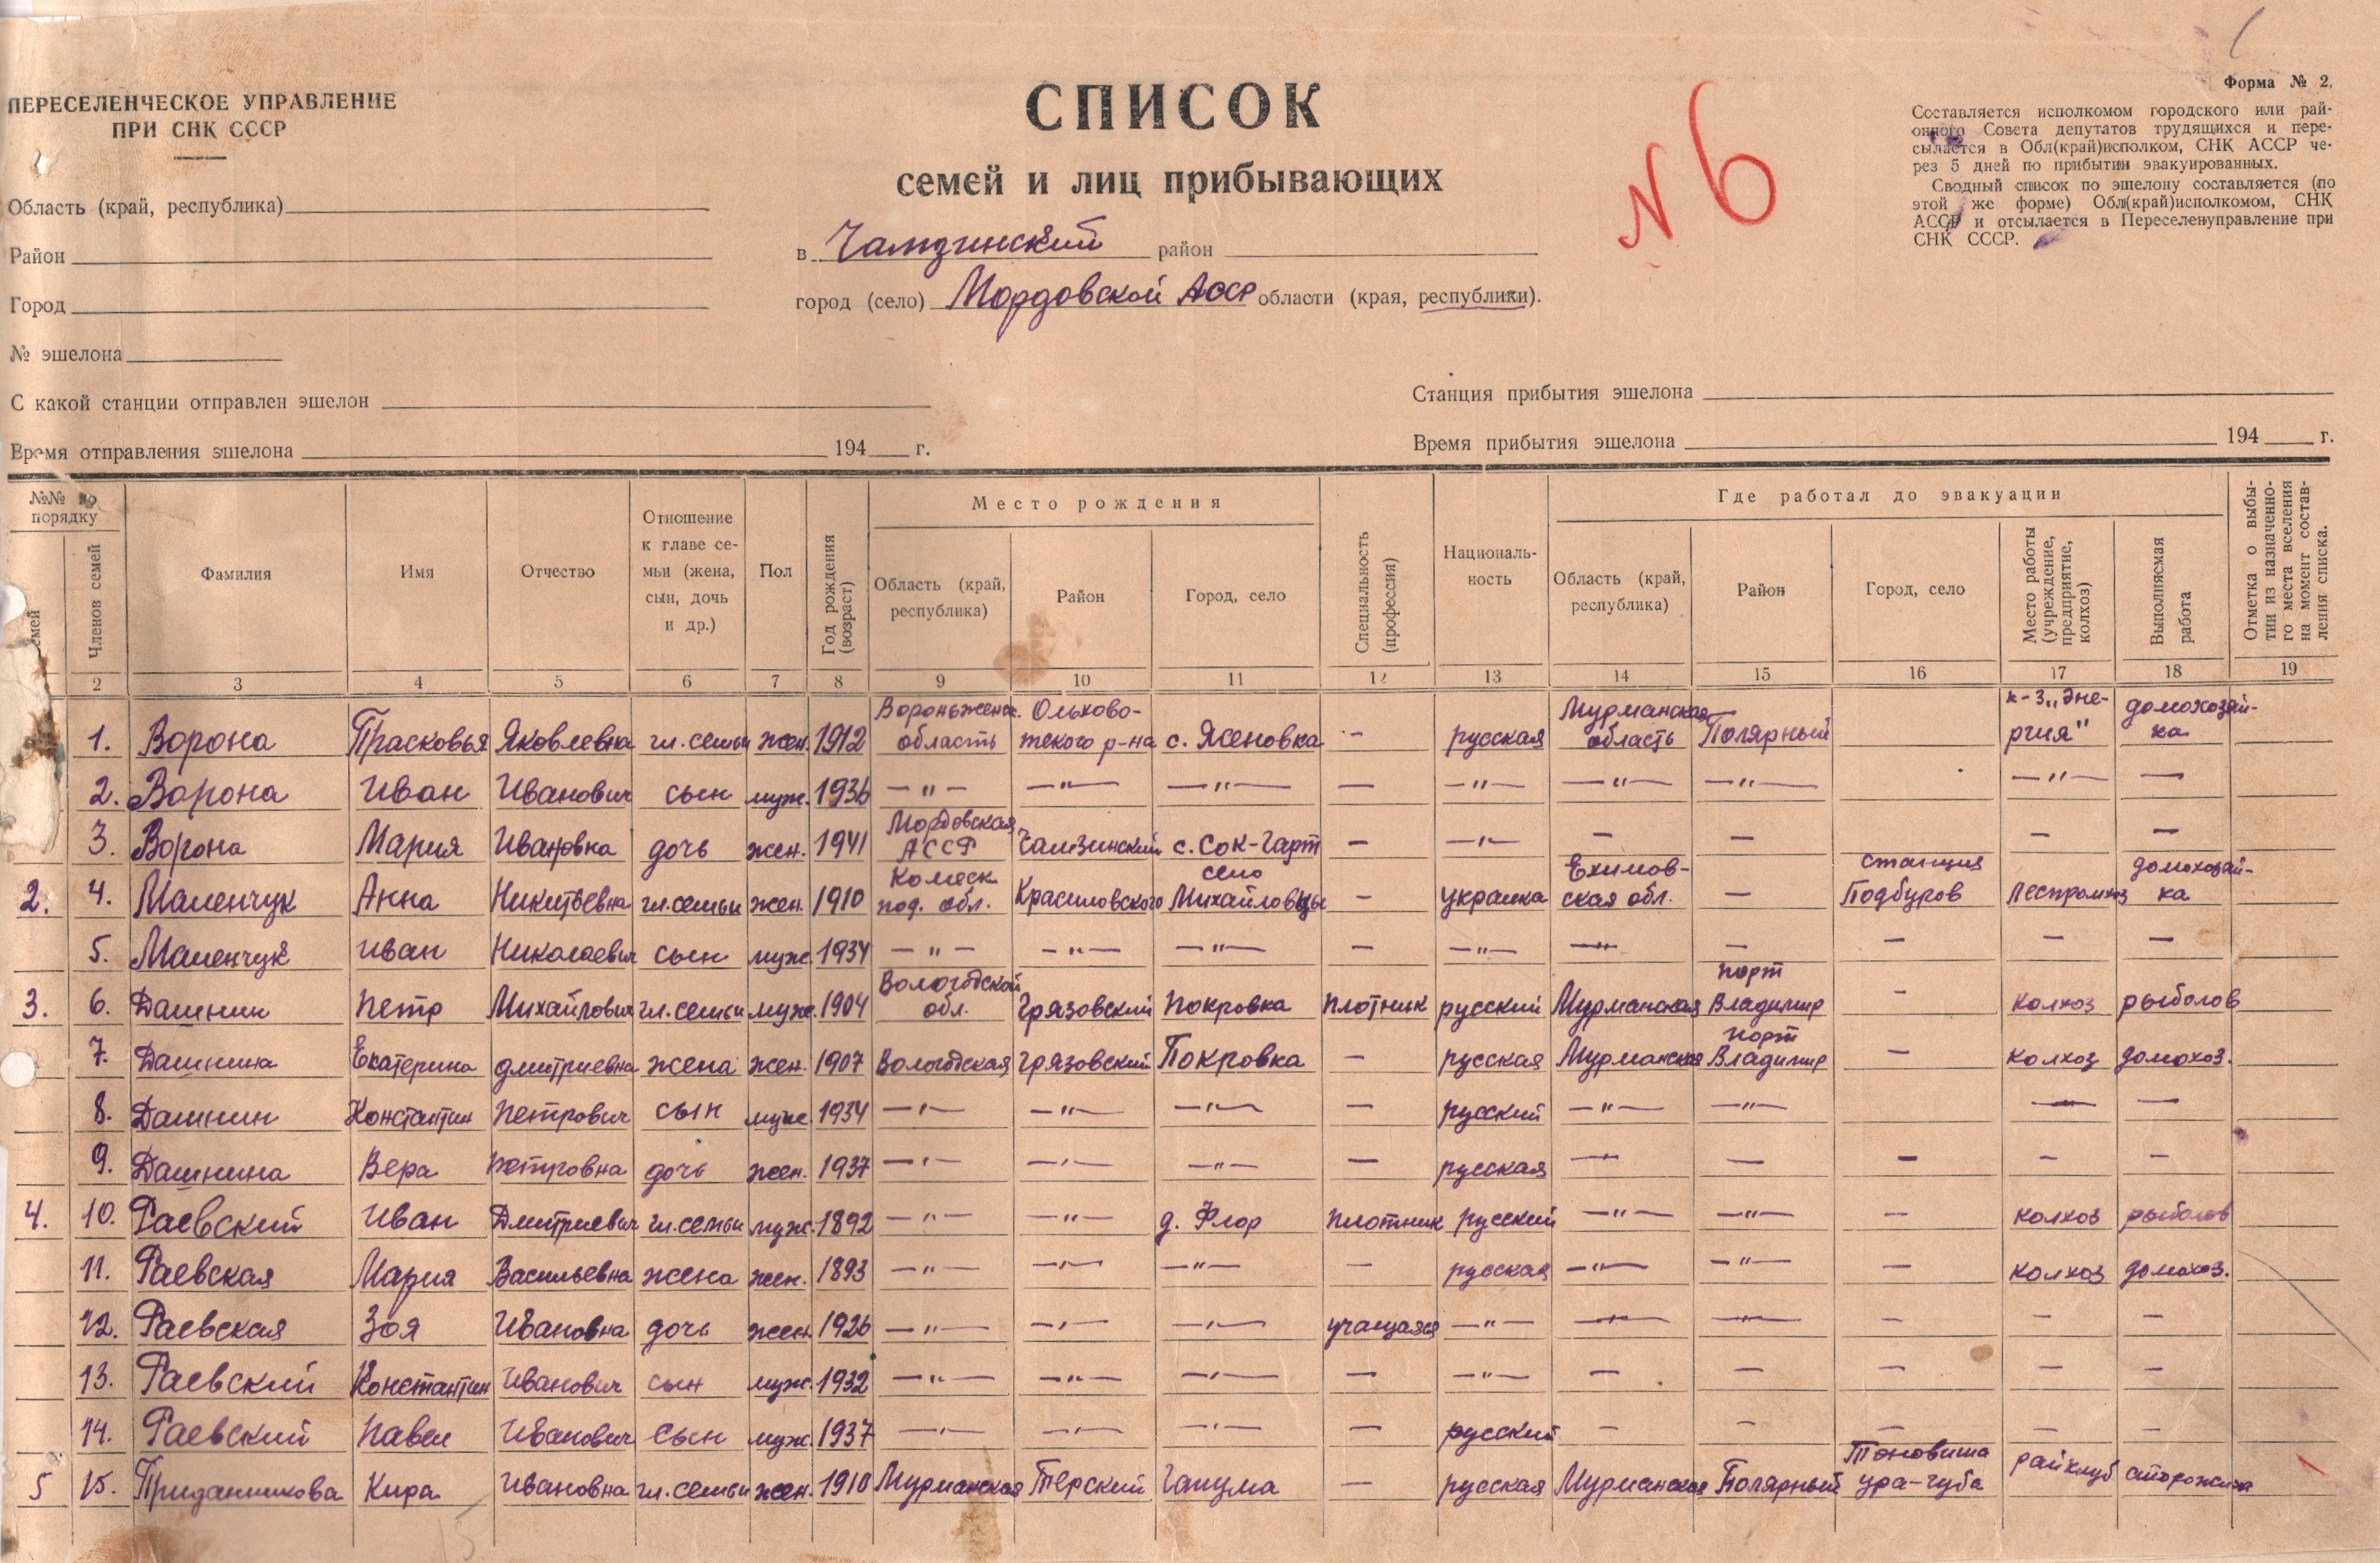 ПЕРЕСЕЛЕНЧЕСКОЕ УПРАВЛЕНИЕ
ПРИ СНК СССР
Область (край, республика)
Район
Город
№ эшелона
С какой станции отправлен эшелон
Время отправления эшелона 194 г.
СПИСОК
семей и лиц прибывающих
в Чамзинский район
город (село) Мордовской АССР области (края, республики).
№ 6
Форма № 2.
Составляется исполкомом городского или рай-
онного Совета депутатов трудящихся и пере-
сылается в Обл(край)исполком, СНК АССР че-
рез 5 дней по прибытии эвакуированных.
Сводный список по эшелону составляется (по
этой же форме) Обл(край)исполкомом, СНК
АССР и отсылается в Переселенуправление при
СНК СССР.
Станция прибытия эшелона
Время прибытия эшелона 194 г.
№№ по порядку
семей
Членов семей
Фамилия
Имя
Отчество
Отношение к главе се-
мьи (жена, сын, дочь и др.)
Пол
Год рождения (возраст)
Место рождения
Область (край, республика)
Район
Город, село
Специальность (профессия)
Националь-
ность
Где работал до эвакуации
Область (край, республика)
Район
Город, село
Место работы (учреждение, предприятие, колхоз)
Выполняемая работа
Отметка о выбы-
тии из назначенно-
го места вселения
на момент состав-
ления списка.
2 3 4 5 6 7 8 9 10 11 12 13 14 15 16 17 18 19
1. Ворона Прасковья Яковлевна гл. семьи жен. 1912 область Ольхово-
жского р-на с. Ясеновка - русская Мурманская область Полярный к-з „Эне-
ргия" домохозяй-
ка
2. Ворона Иван Иванович сын муж. 1936 — " — — " — — " — — — " — — " — — " — — " — —
3. Ворона Мария Ивановна дочь жен. 1941 Мордовская АССР Чамзинский с. Сок-Гарт — — " — — — — —
2. 4. Маленчук Анна Никитьевна гл. семьи жен. 1910 Камеск под. обл. Красиловского село Михайловцы — украинка ская обл. — станция Подбуров Леспромхоз домохозяй-
ка
5. Маленчук Иван Николаевич сын муж 1934 — " — — " — — " — — — " — — " — — — — —
3. 6. Дашнин Петр Михайлович гл. семьи муж. 1904 Вологодской обл. Грязовский Покровка плотник русский Мурманская порт Владимир — колхоз рыболов
7. Дашнина Екатерина Дмитриевна жена жен. 1907 Вологодская Грязовский Покровка — русская Мурманская порт Владимир — колхоз домохоз.
8. Дашнин Константин Петрович сын муж 1934 — " — — " — — " — — русский — " — — " — — —
9. Дашнина Вера Петровна дочь жен. 1937 — " — — " — — " — — русская — " — — — — —
4. 10. Раевский Иван Дмитриевич гл. семьи муж. 1892 — " — — " — д. Флор плотник русский — " — — " — — колхоз рыболов
11. Раевская Мария Васильевна жена жен. 1893 — " — — " — — " — — русская — " — — " — — колхоз домохоз.
12. Раевская Зоя Ивановна дочь жен 1926 — " — — " — — " — учащаяся — " — — " — — " — — — —
13. Раевский Константин Иванович сын муж. 1932 — " — — " — — " — — — " — — — — — —
14. Раевский Павел Иванович сын муж. 1937 — " — — " — — " — — русский — — — — —
5 15. Приданникова Кира Ивановна гл. семьи жен. 1910 Мурманская Терский Чапума — русская Мурманская Полярный ура-губа райклуб сторожиха